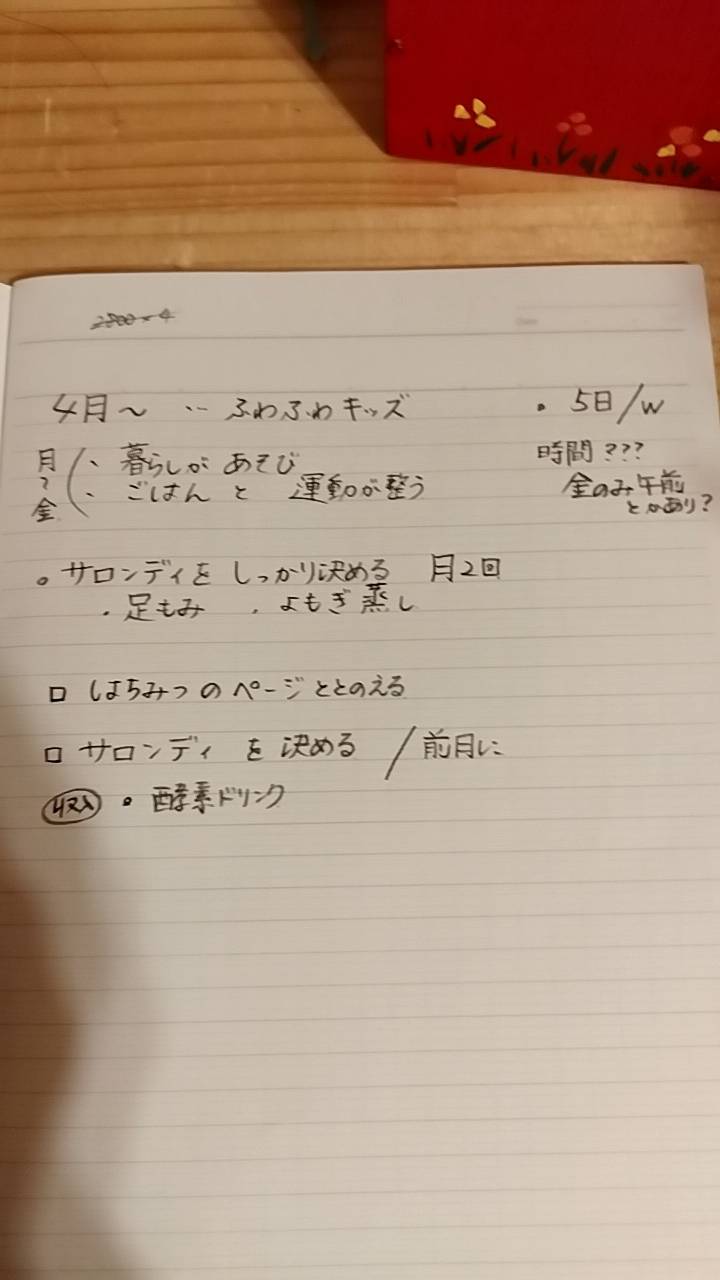 2800×4
4月〜 ‥ ふわふわキッズ
・5日/w
月〜金
・暮らしが あそび
・ごはん と 運動が整う
時間???
金のみ午前
とかあり?
。サロンディを しっかり決める 月2回
・足もみ ・よもぎ蒸し
□ はちみつのページととのえる
□ サロンディ を 決める /前月に
収入 。酵素ドリンク